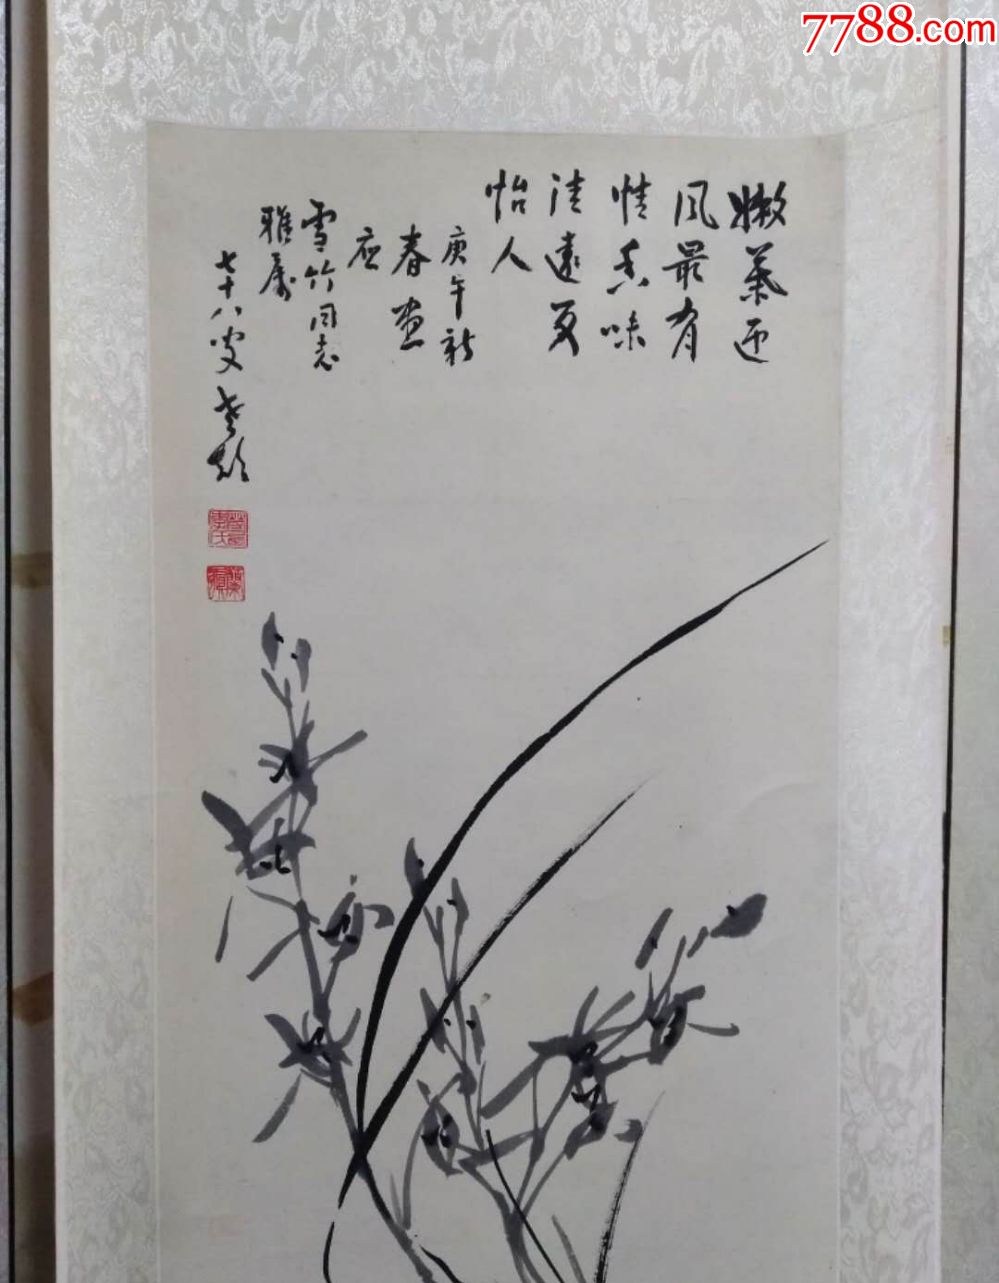 7788.com
嫩叶迎
风最有
情香味
清远更
怡人
庚午新
春画
应
雪竹同志
雅属
七十八叟